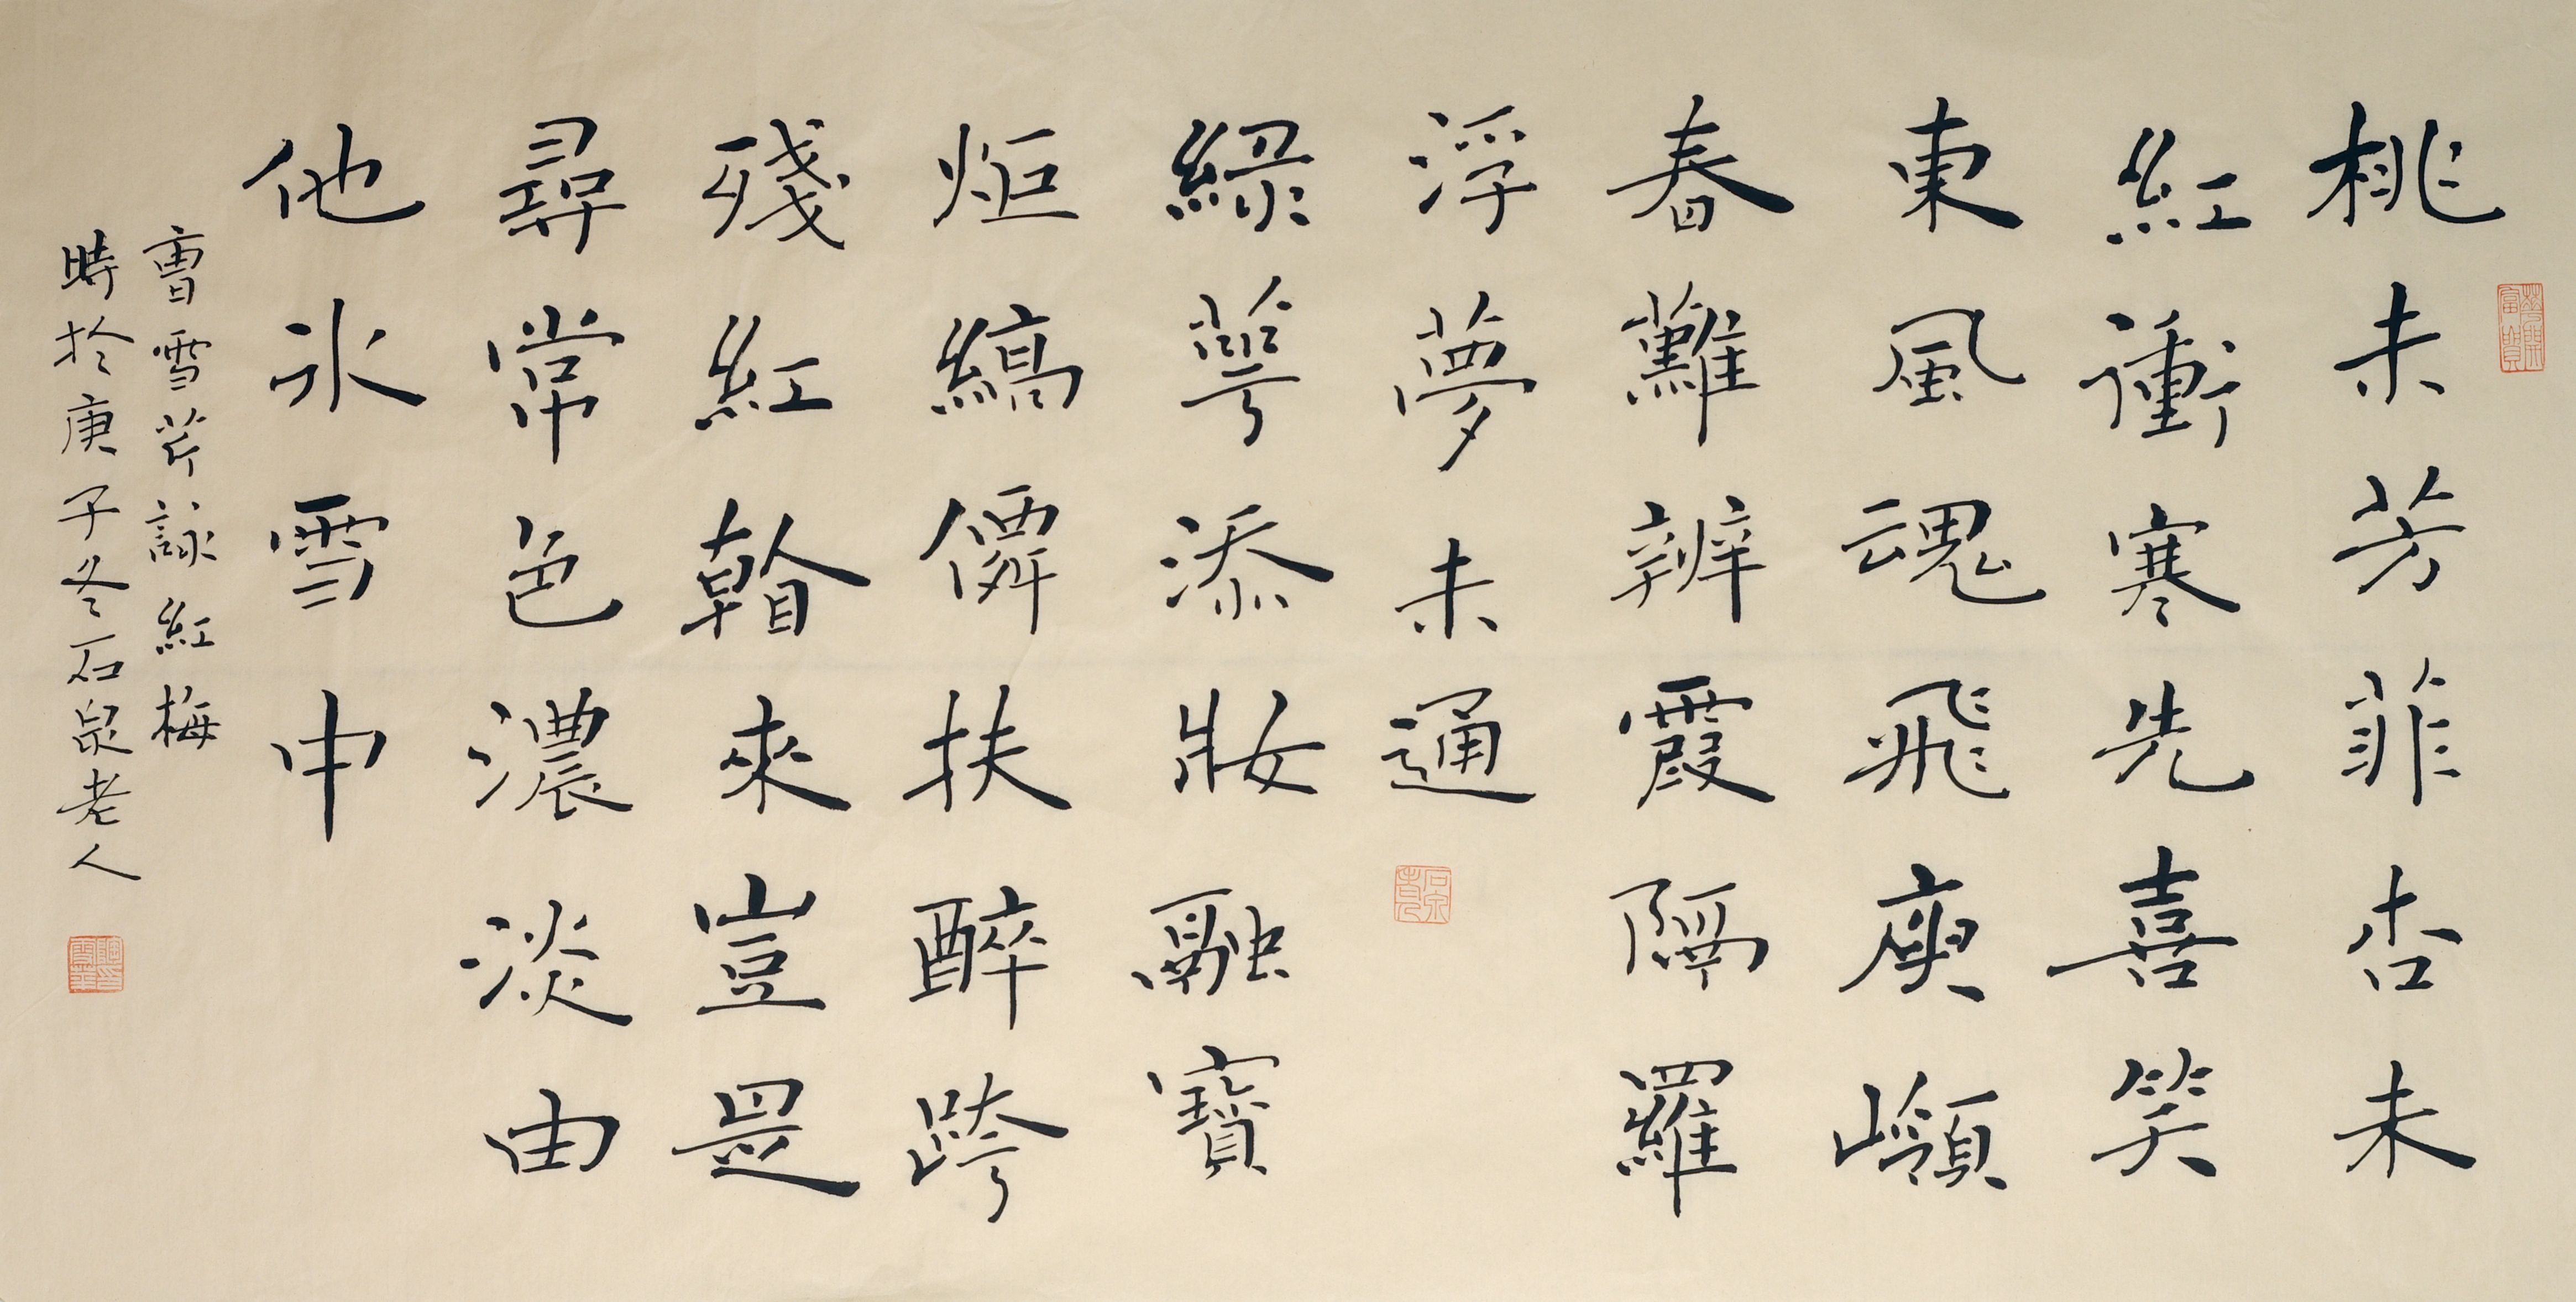 桃未芳菲杏未
紅衝寒先喜笑
東風魂飛庾嶺
春難辨霞隔羅
浮夢未通
綠萼添妝融寶
炬縞僊扶醉跨
殘紅翰來豈是
尋常色濃淡由
他冰雪中
曹雪芹詠紅梅
時於庚子冬石泉老人